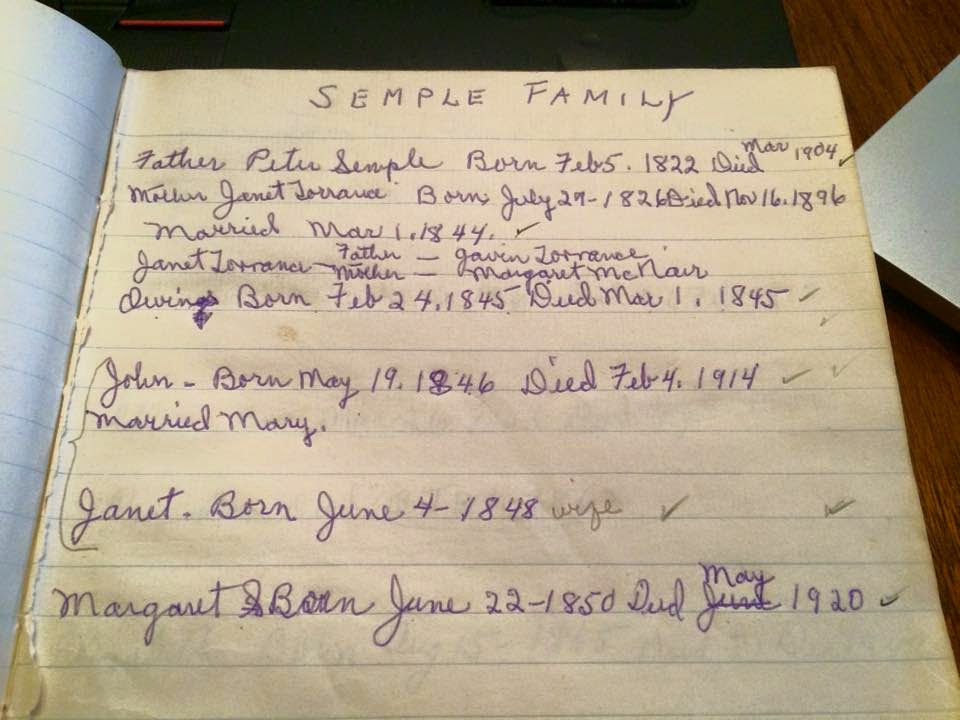 SEMPLE FAMILY
Father Peter Semple Born Feb 5. 1822 Died Mar 1904
Mother Janet Torrance Born July 29-1826 Died Nov 16. 1896
Married Mar 1. 1844.
Janet Torrance - Father - Gavin Torrance
Mother - Margaret McNair
Born Feb 24. 1845 Died Mar 1. 1845
John - Born May 19. 1846 Died Feb 4. 1914
Married Mary.
Janet. Born June 4-1848 wife
Margaret Born June 22-1850 Died May June 1920